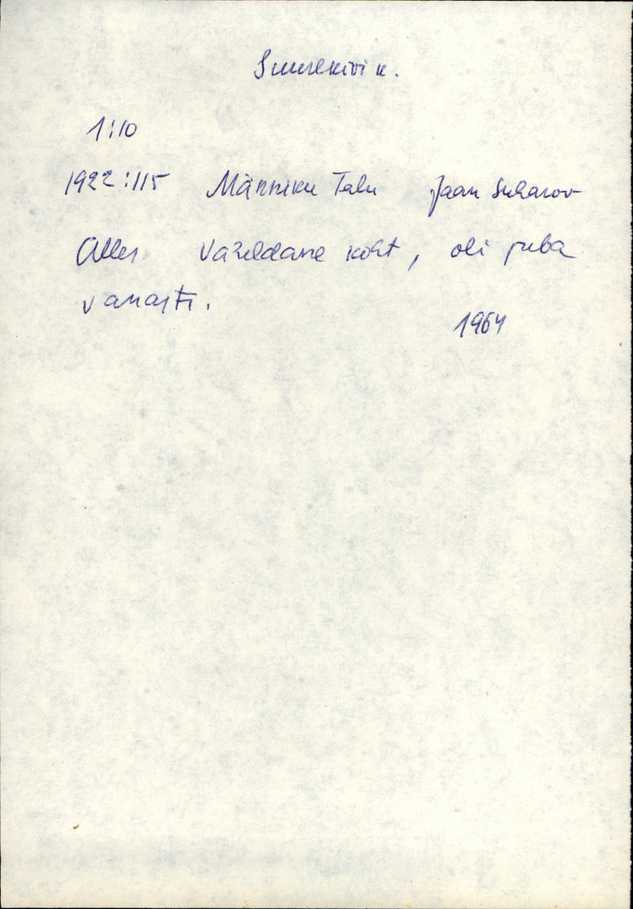 Suurekivi k.
1:10
1922:115 Männiku Talu Jaan Suharov
Alles. koht, oli juba
vanasti.
1964